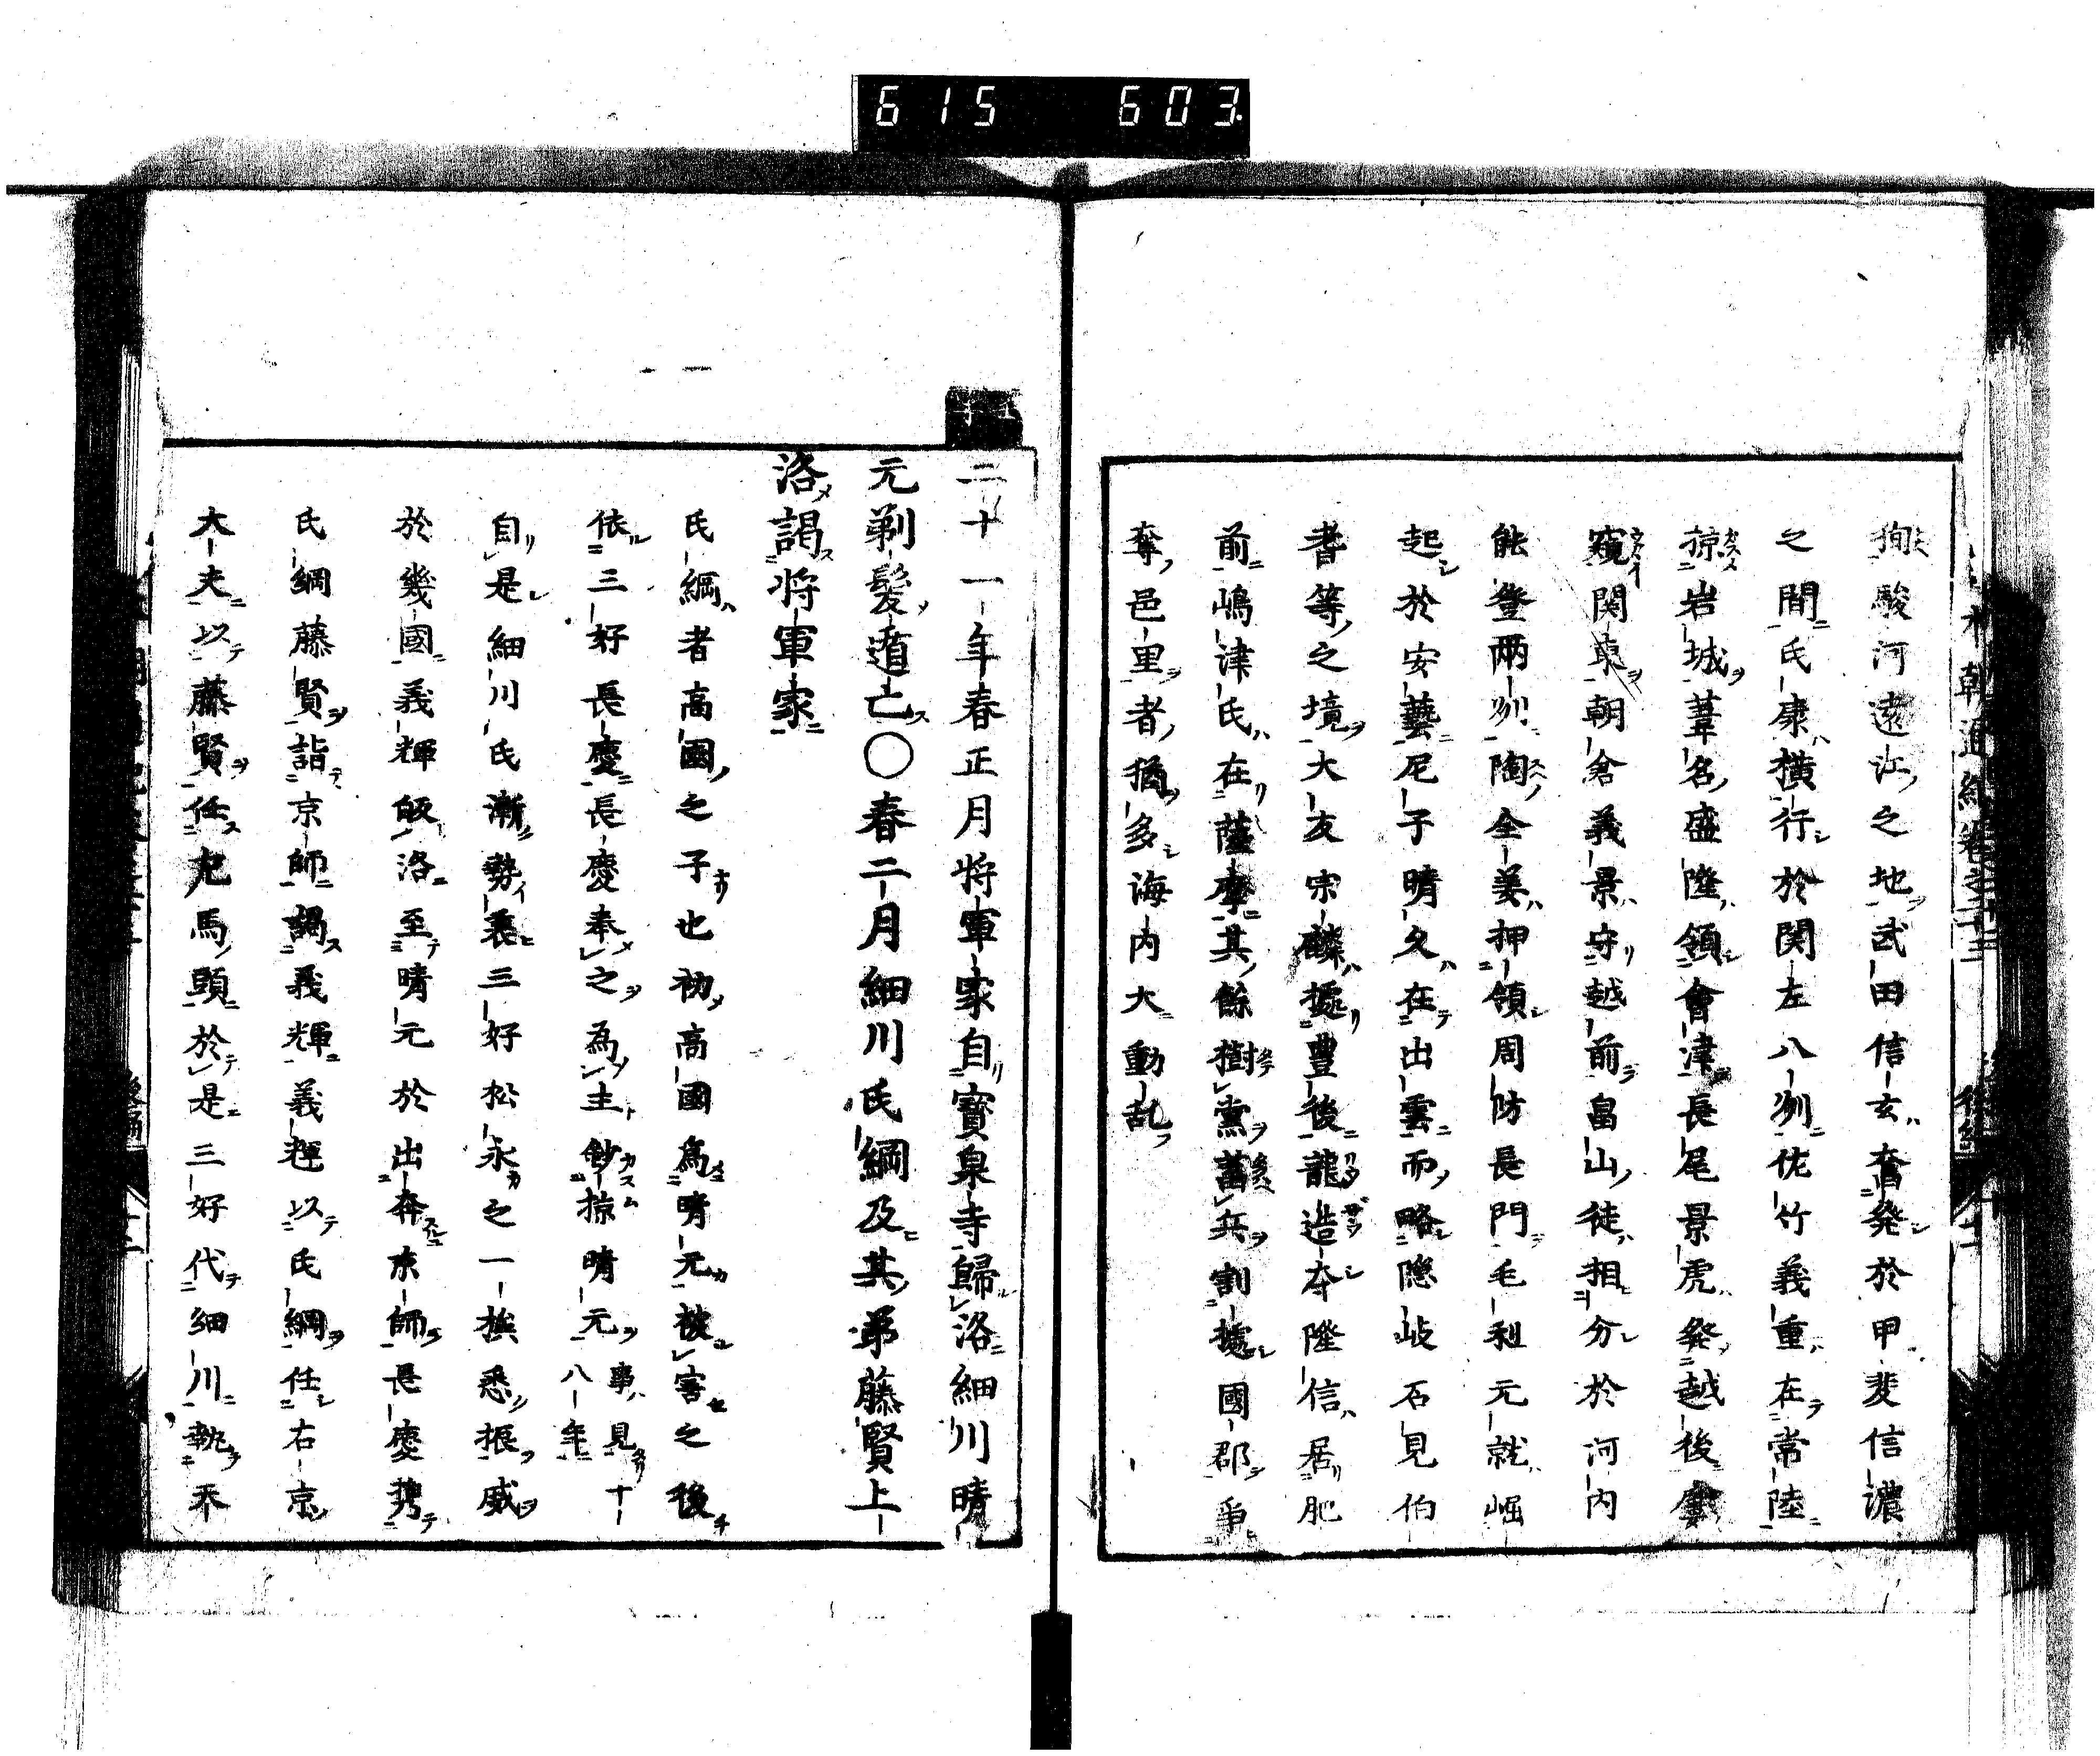 615 603
徇駿河遠江之地武田信玄奮発於甲斐信濃
之間氏康横行於関左八州佐竹義重在常陸
掠岩城葦名盛隆領會津長尾景虎発越後屢
窺関東朝倉義景守越前畠山徒相分於河内
能登兩州陶全姜押領周防長門毛利元就崛
起於安藝尼子晴久在出雲而略隠岐石見伯
耆等之境大友宗麟據豊後龍造寺隆信居肥
前嶋津氏在薩摩其餘樹黨蓄兵割據國郡争
奪邑里者猶多海内大動乱
二十一年春正月将軍家自寶泉寺歸洛細川晴
元剃髪遁亡〇春二月細川氏綱及其弟藤賢上
洛謁将軍家
氏綱者高國之子也初高國為晴元被害之後
依三好長慶長慶奉之為主鈔掠晴元事見十八年
自是細川氏漸勢衰三好松永之一族悉振威
於幾國義輝皈洛至晴元於出奔京師長慶携
氏綱藤賢詣京師謁義輝義輝以氏綱任右京
大夫以藤賢任右馬頭於是三好代細川執不